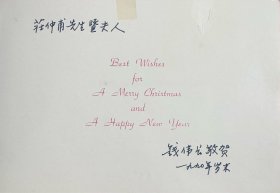 莊仲甫先生暨夫人
Best Wishes
for
A Merry Christmas
and
A Happy New Year
钱伟长敬贺
一九九〇年岁末